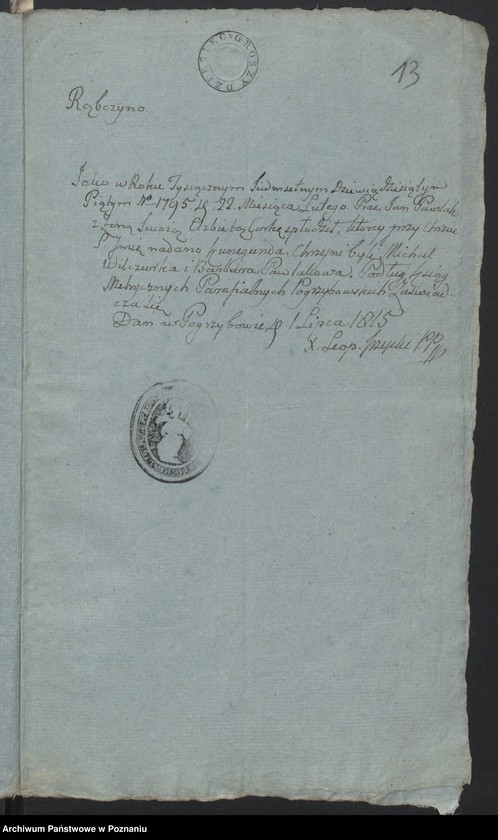 DZIESIĘĆ GROSZY
13
Rąbczyno.
Jako w Roku Tysiącznym Siedmsetnym Dziewiądziesiątym
Piątym No 1795. d. 22. Miesiąca Lutego. Prac. Jan Pawlak
z żoną Swoią Elżbietą Corkę spłodził, ktory przy Chrzcie
S. Imię nadano Kunegunda. Chrzesni byli Michał
Wilczurka i Barbara Pawlakowa. Podług Xsiąg
Metrycznych Parafialnych Pogrzybowskich zaswiad-
cza się
Dan w Pogrzybowie d. 1 Lipca 1815
X. Leop.
Archiwum Państwowe w Poznaniu